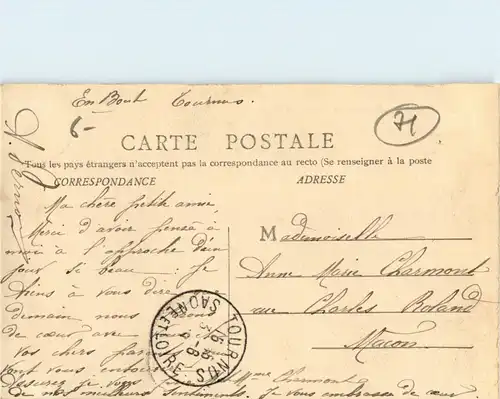 En Bout Tournus.
6-
71
CARTE POSTALE
Tous les pays étrangers n'acceptent pas la correspondance au recto (Se renseigner à la poste
CORRESPONDANCE
ADRESSE
Ma chère petite amie
Merci d'avoir pensé à
moi à l'approche d'un
jour si beau : Je
tiens à vous dire
Demain nous
de cœur avec
Vos chers
vont vous
Mme Charmont
de nos meilleurs sentiments. Je vous embrasse de cœur
Mademoiselle
Anne Marie Charmont
rue Charles Roland
Macon
TOURNUS
SAONE ET LOIRE